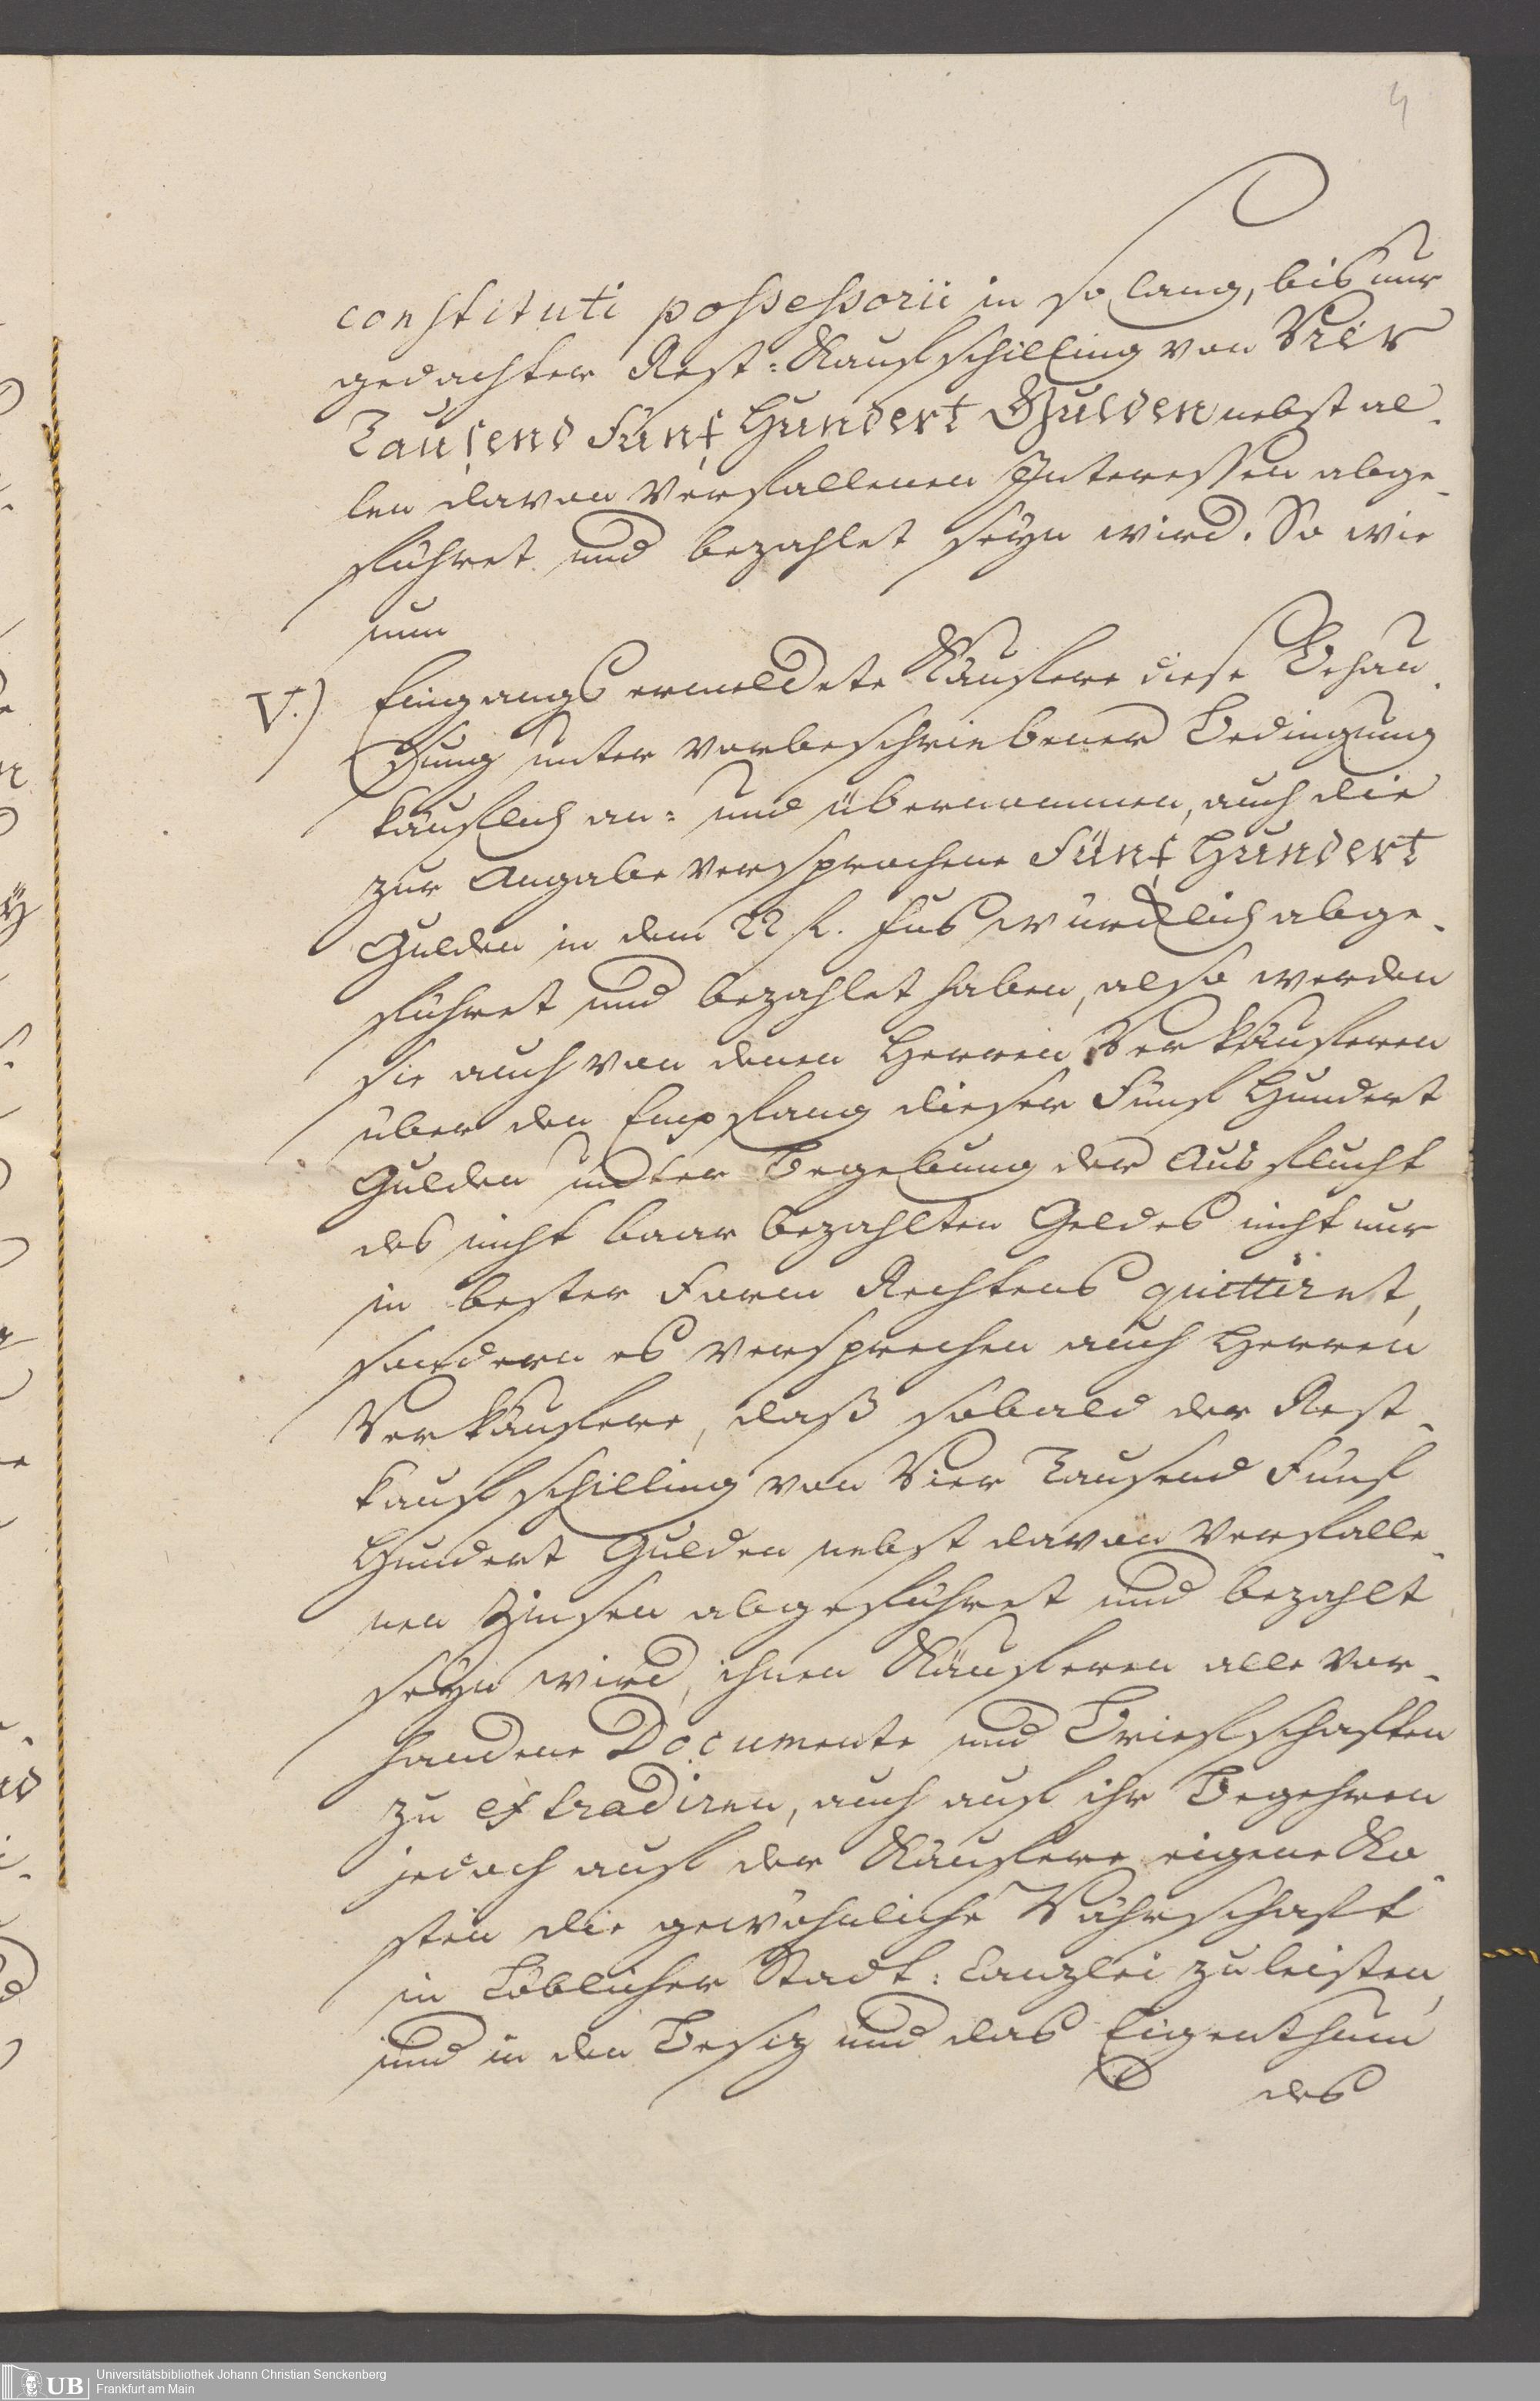 4
constituti possessorii in so lang, bis nur
gedachter Rest-Kaufschilling von Vier
Tausend Fünf Hundert Gulden nebst al-
len davon verfallenen Interessen abge-
führet und bezahlet seyn wird. So wie
nun
V.) Eingangs ermeldete Käufere diese Behau-
sung unter vorbeschriebener Bedingung
käuflich an- und übernommen, auch die
zur Angabe versprochene Fünf Hundert
Gulden in dem 22 fl. Fus würcklich abge-
führet und bezahlet haben, also werden
sie auch von denen Herren Verkäuferen
über den Empfang dieser Fünf Hundert
Gulden unter Begebung der Ausflucht
des nicht baar bezahlten Geldes nicht nur
in bester Form Rechtens quittiret,
sondern es versprechen auch Herren
Verkäufere, daß sobald der Rest-
kaufschilling von Vier Tausend Fünf
Hundert Gulden nebst davon verfalle-
nen Zinsen abgeführet und bezahlt
seyn wird, ihnen Käuferen alle vor-
handene Documente und Briefschaften
zu extradiren, auch auf ihr Begehren
jedoch auf der Käufere eigene Ko-
sten die gewöhnliche Währschaft
in Löblicher Stadt-Canzlei zu leisten,
und in den Besiz und das Eigenthum
des
UB Universitätsbibliothek Johann Christian Senckenberg
Frankfurt am Main